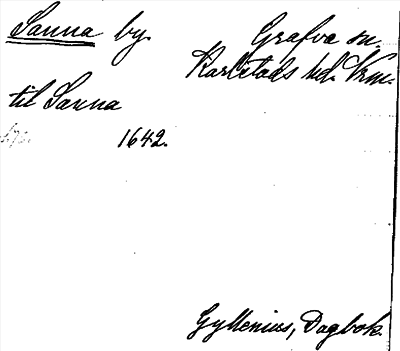 Sanna by. Grafva sn.
Karlstads hd. Vrm.
til Sanna
1642.
Gyllenius, Dagbok.